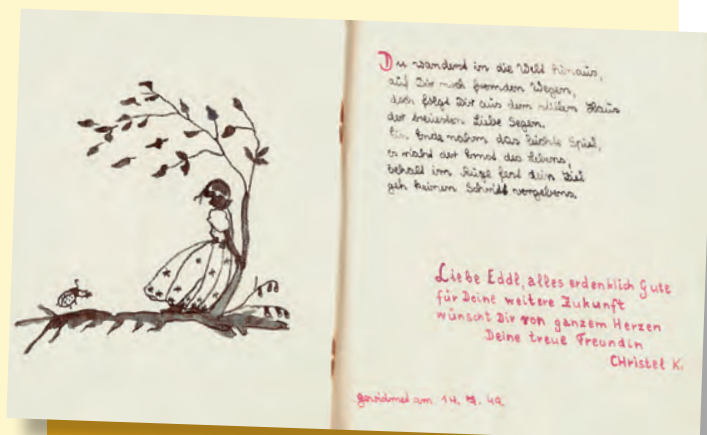 Du wanderst in die Welt hinaus,
auf Dir noch fremden Wegen,
doch folgt Dir aus dem stillen Haus
der treuesten Liebe Segen.
Ein Ende nahm das leichte Spiel,
es naht der Ernst des Lebens,
behalt im Auge fest dein Ziel
geh keinen Schritt vergebens.
Liebe Eddl, alles erdenklich Gute
für Deine weitere Zukunft
wünscht Dir von ganzem Herzen
Deine treue Freundin
CHristel K.
gewidmed am 14. 49.